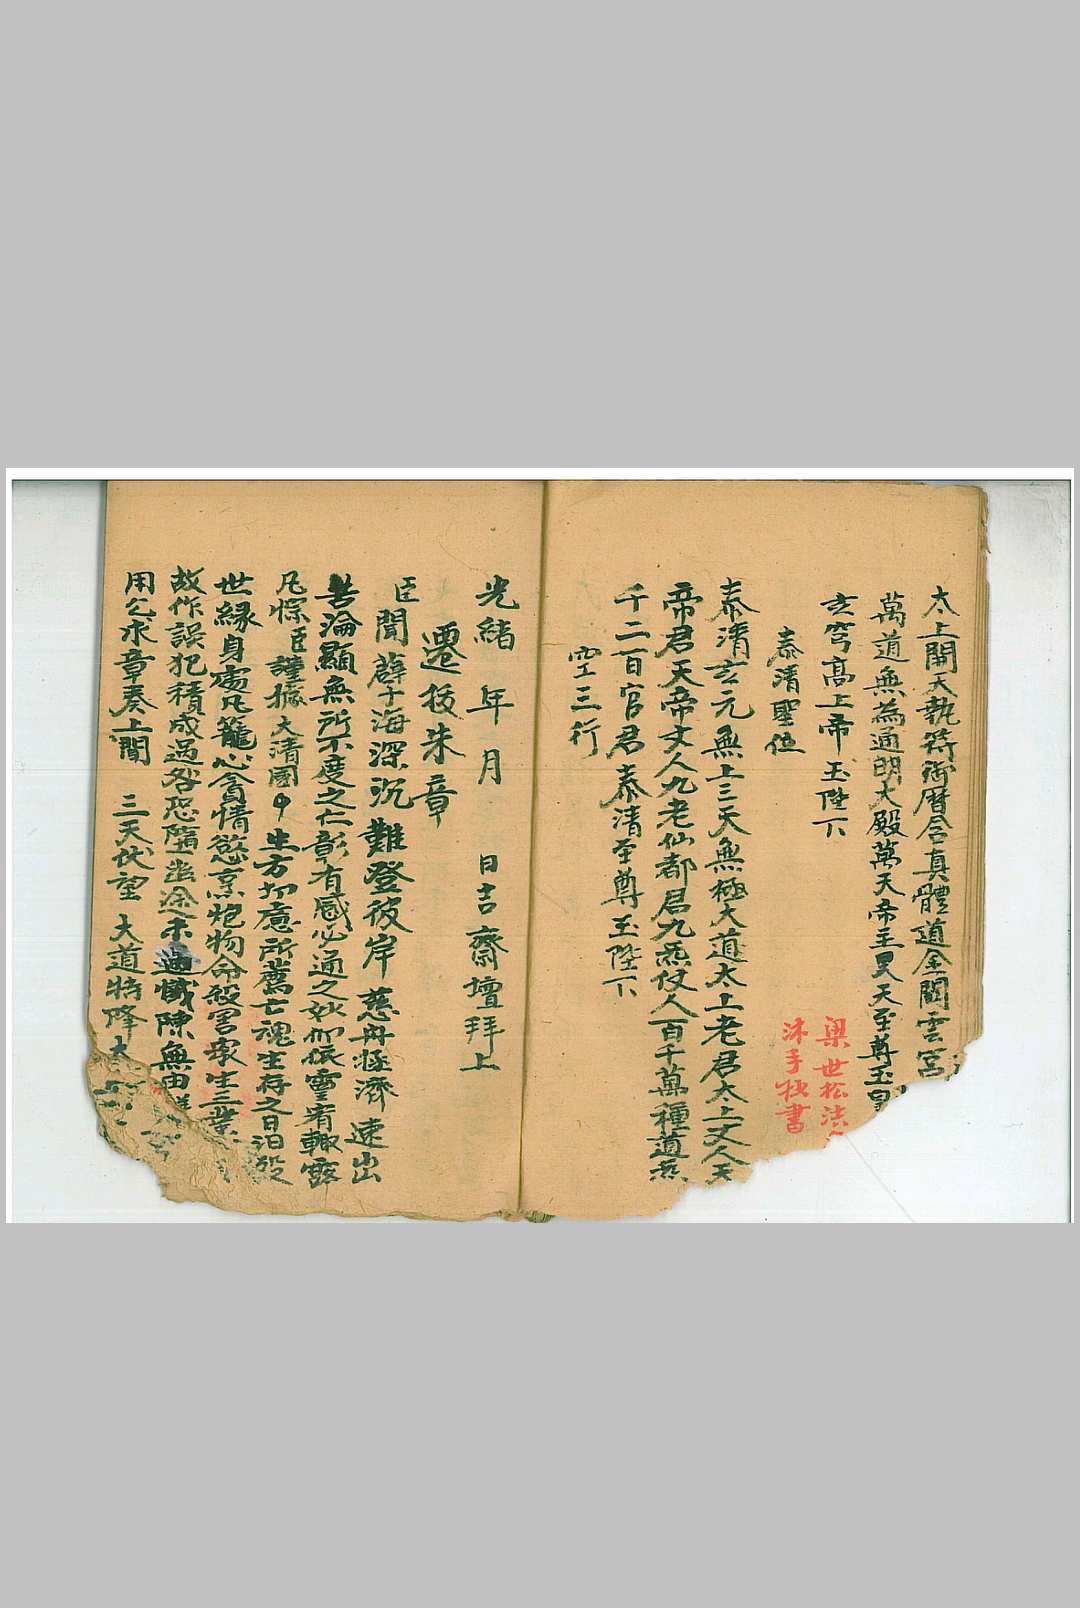 太上開天執符御曆含真體道金闕雲宮
萬道無為通明大殿萬天帝主昊天至尊玉皇
玄穹高上帝玉陛下
梁世松法
沐手抄書
泰清聖位
泰清玄元無上三天無極大道太上老君太上丈人天
帝君天帝丈人九老仙都君九炁仗人百千萬種道炁
千二百官君泰清至尊玉陛下
空三行
光緒 年 月 日吉齋壇拜上
遷拔朱章
臣聞孽海深沉難登彼岸慈舟拯濟速出
苦淪顯無所不度之仁彰有感必通之妙仰依靈宥輙露
凡悰臣謹據大清國 生方 所薦亡魂生存之日汩沒
世緣身處凡籠心貪情慾烹炮物命殺害衆生三業
故作誤犯積成過咎恐墮幽途未 懺陳無由
用乞求章奏上聞 三天伏望 大道特降